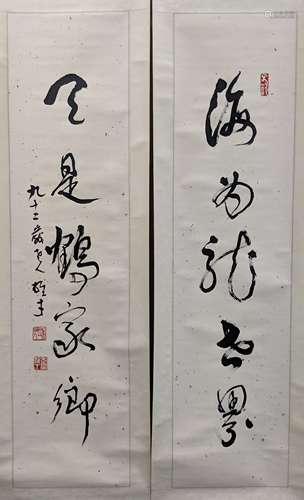 海为龙世界
天是鹤家乡
九十二岁老人雄才